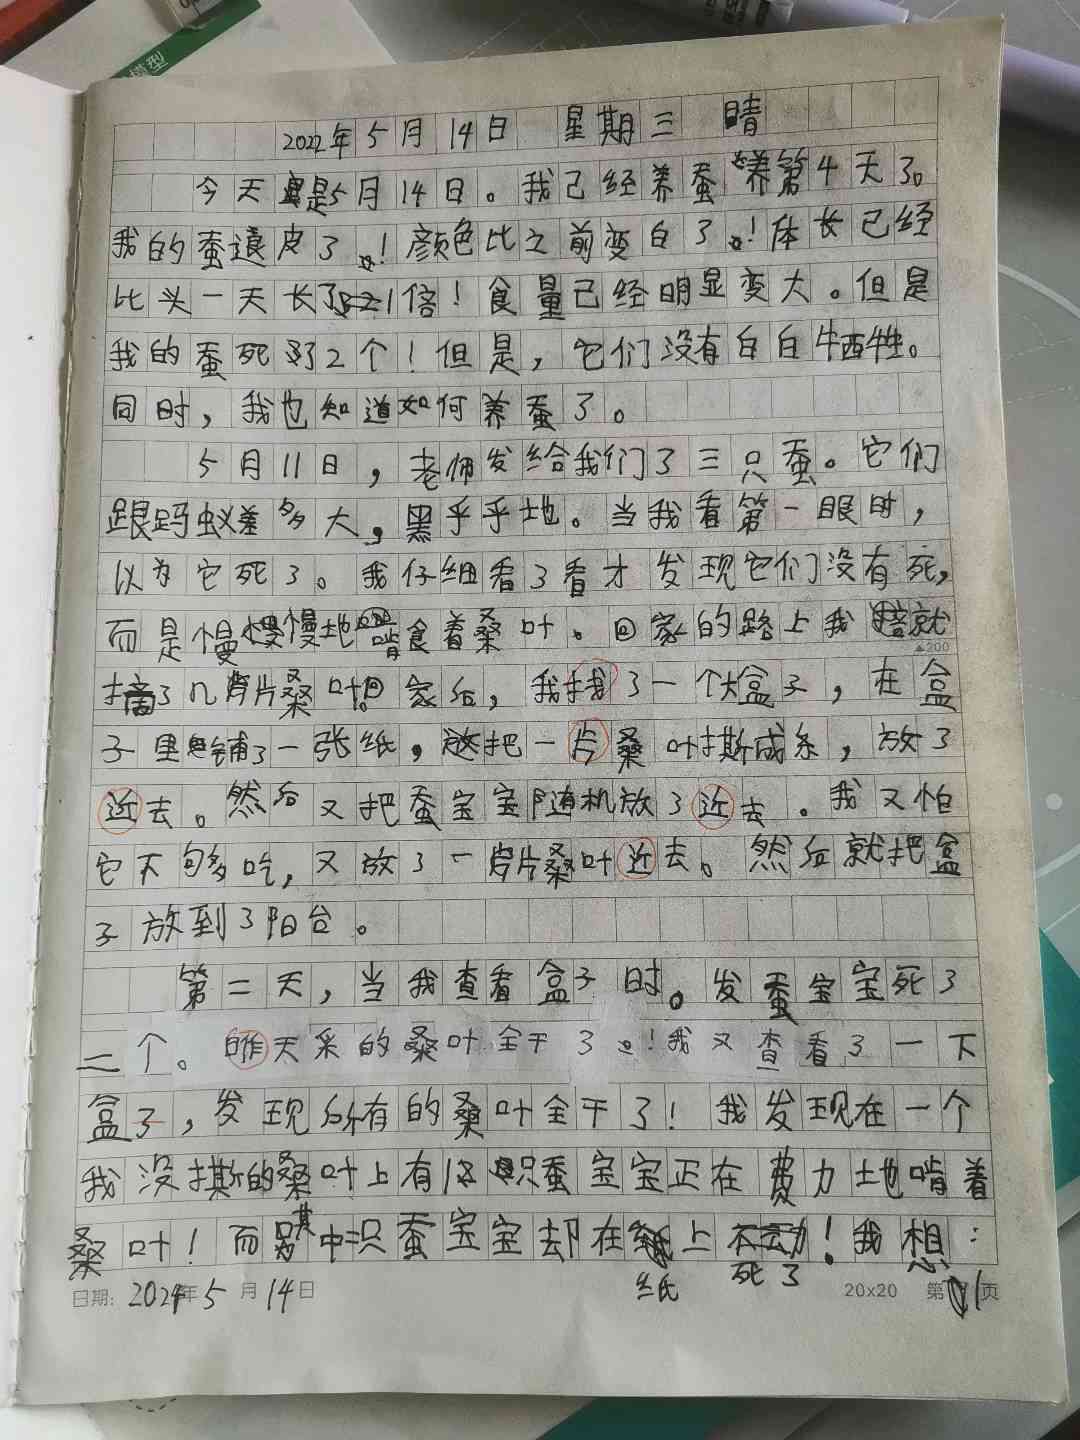 模型
2022年5月14日 星期三 晴
今天是5月14日。我己经养蚕养第4天了。
我的蚕退皮了!颜色比之前变白了!体长已经
比头一天长了1倍!食量己经明显变大。但是
我的蚕死了2个!但是,它们没有白白牺牲。
同时,我也知道如何养蚕了。
5月11日,老师发给我们了三只蚕。它们
跟蚂蚁差多大,黑乎乎地。当我看第一眼时,
以为它死了。我仔细看了看才发现它们没有死,
而是慢慢慢地啃食着桑叶。回家的路上我就
▲200
摘了几片桑叶。回家后,我找了一个大盒子,在盒
子里铺了一张纸,把一片桑叶撕成条,放了
近去。然后又把蚕宝宝随机放了近去。我又怕
它不够吃,又放了一片桑叶近去。然后就把盒
子放到了阳台。
第二天,当我查看盒子时。发蚕宝宝死了
二个。昨天采的桑叶全干了!我又查看了一下
盒子,发现所有的桑叶全干了!我发现在一个
我没撕的桑叶上有只蚕宝宝正在费力地啃着
桑叶!而其中二只蚕宝宝却在纸上死了!我想:
日期: 2024年5月14日 20x20 第1页